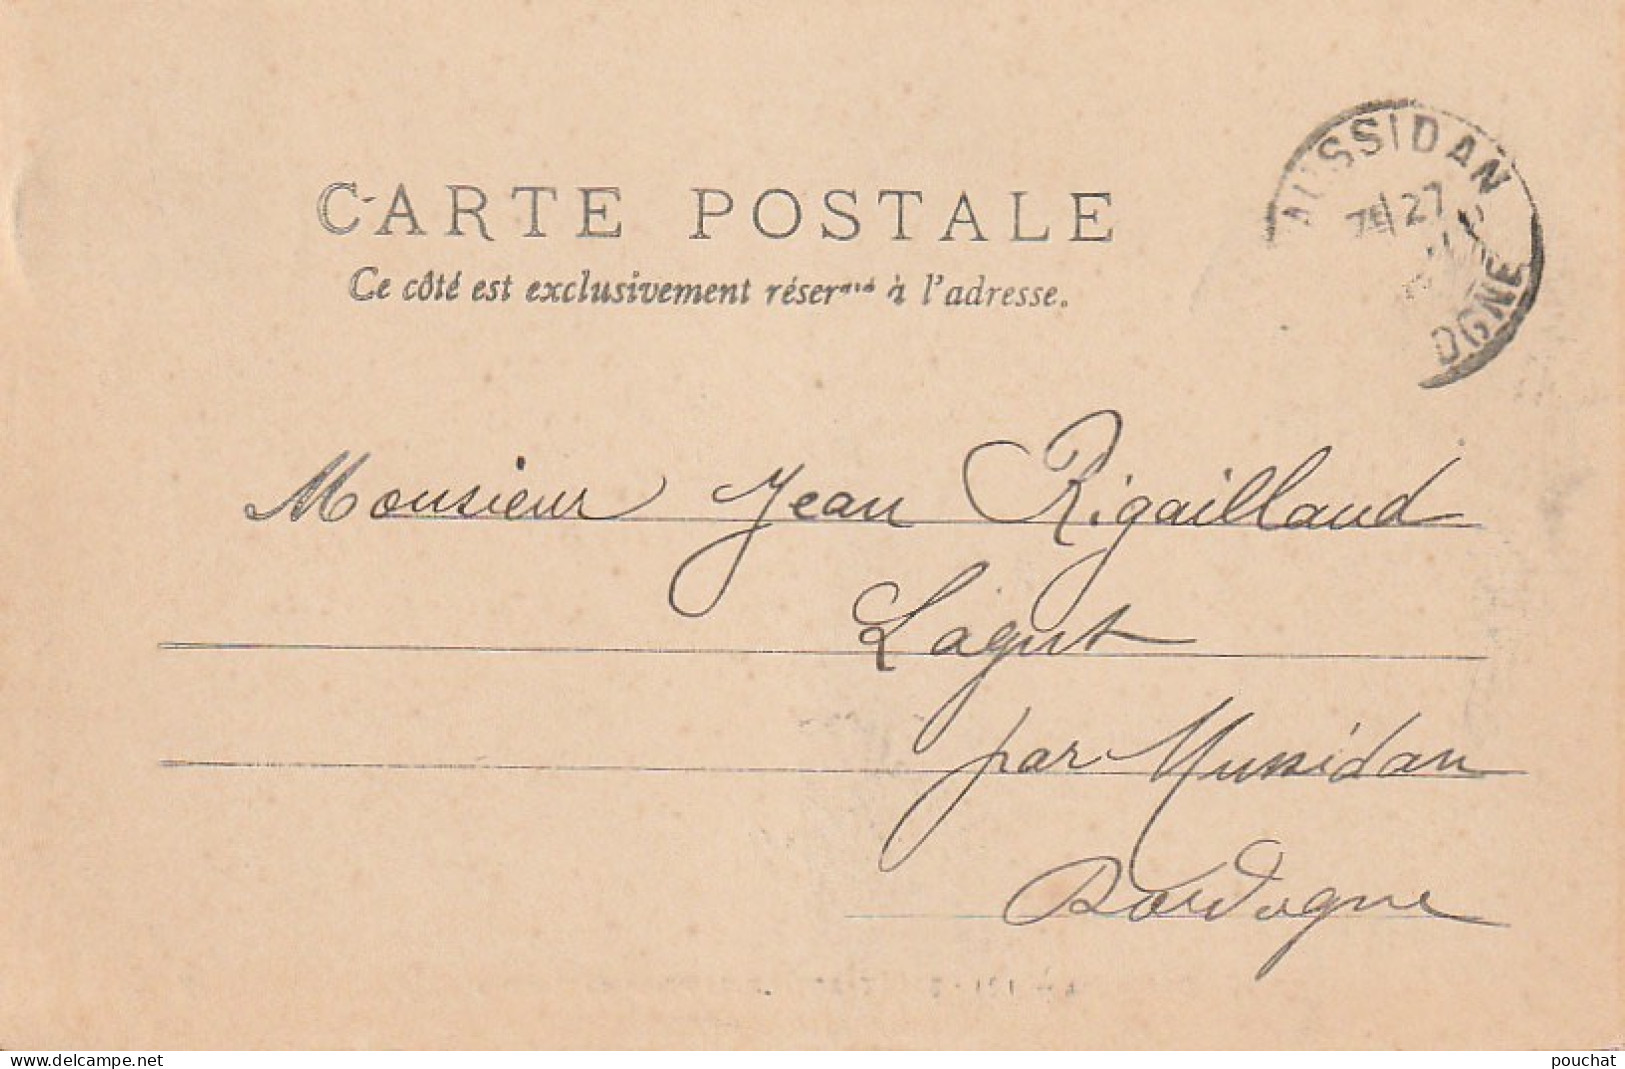 CARTE POSTALE
Ce côté est exclusivement réservé à l'adresse.
AUSSIDAN
7E 27
OGNE
Monsieur Jean Rigaillaud
Lagut
par Mussidan
Dordogne
www.delcampe.net
pouchat